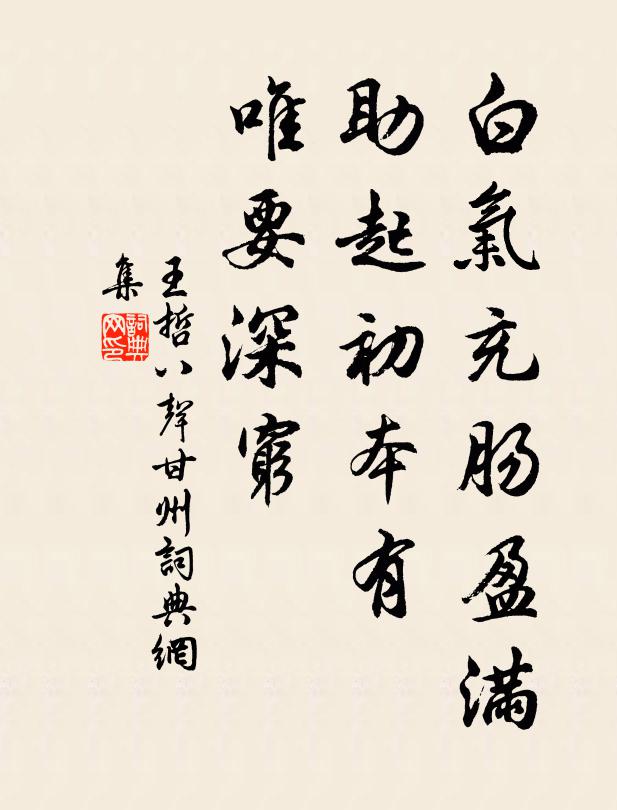 白氣充腸盈滿
助起初本有
唯要深窮
王哲八聲甘州詞典網
集
詞典
网印